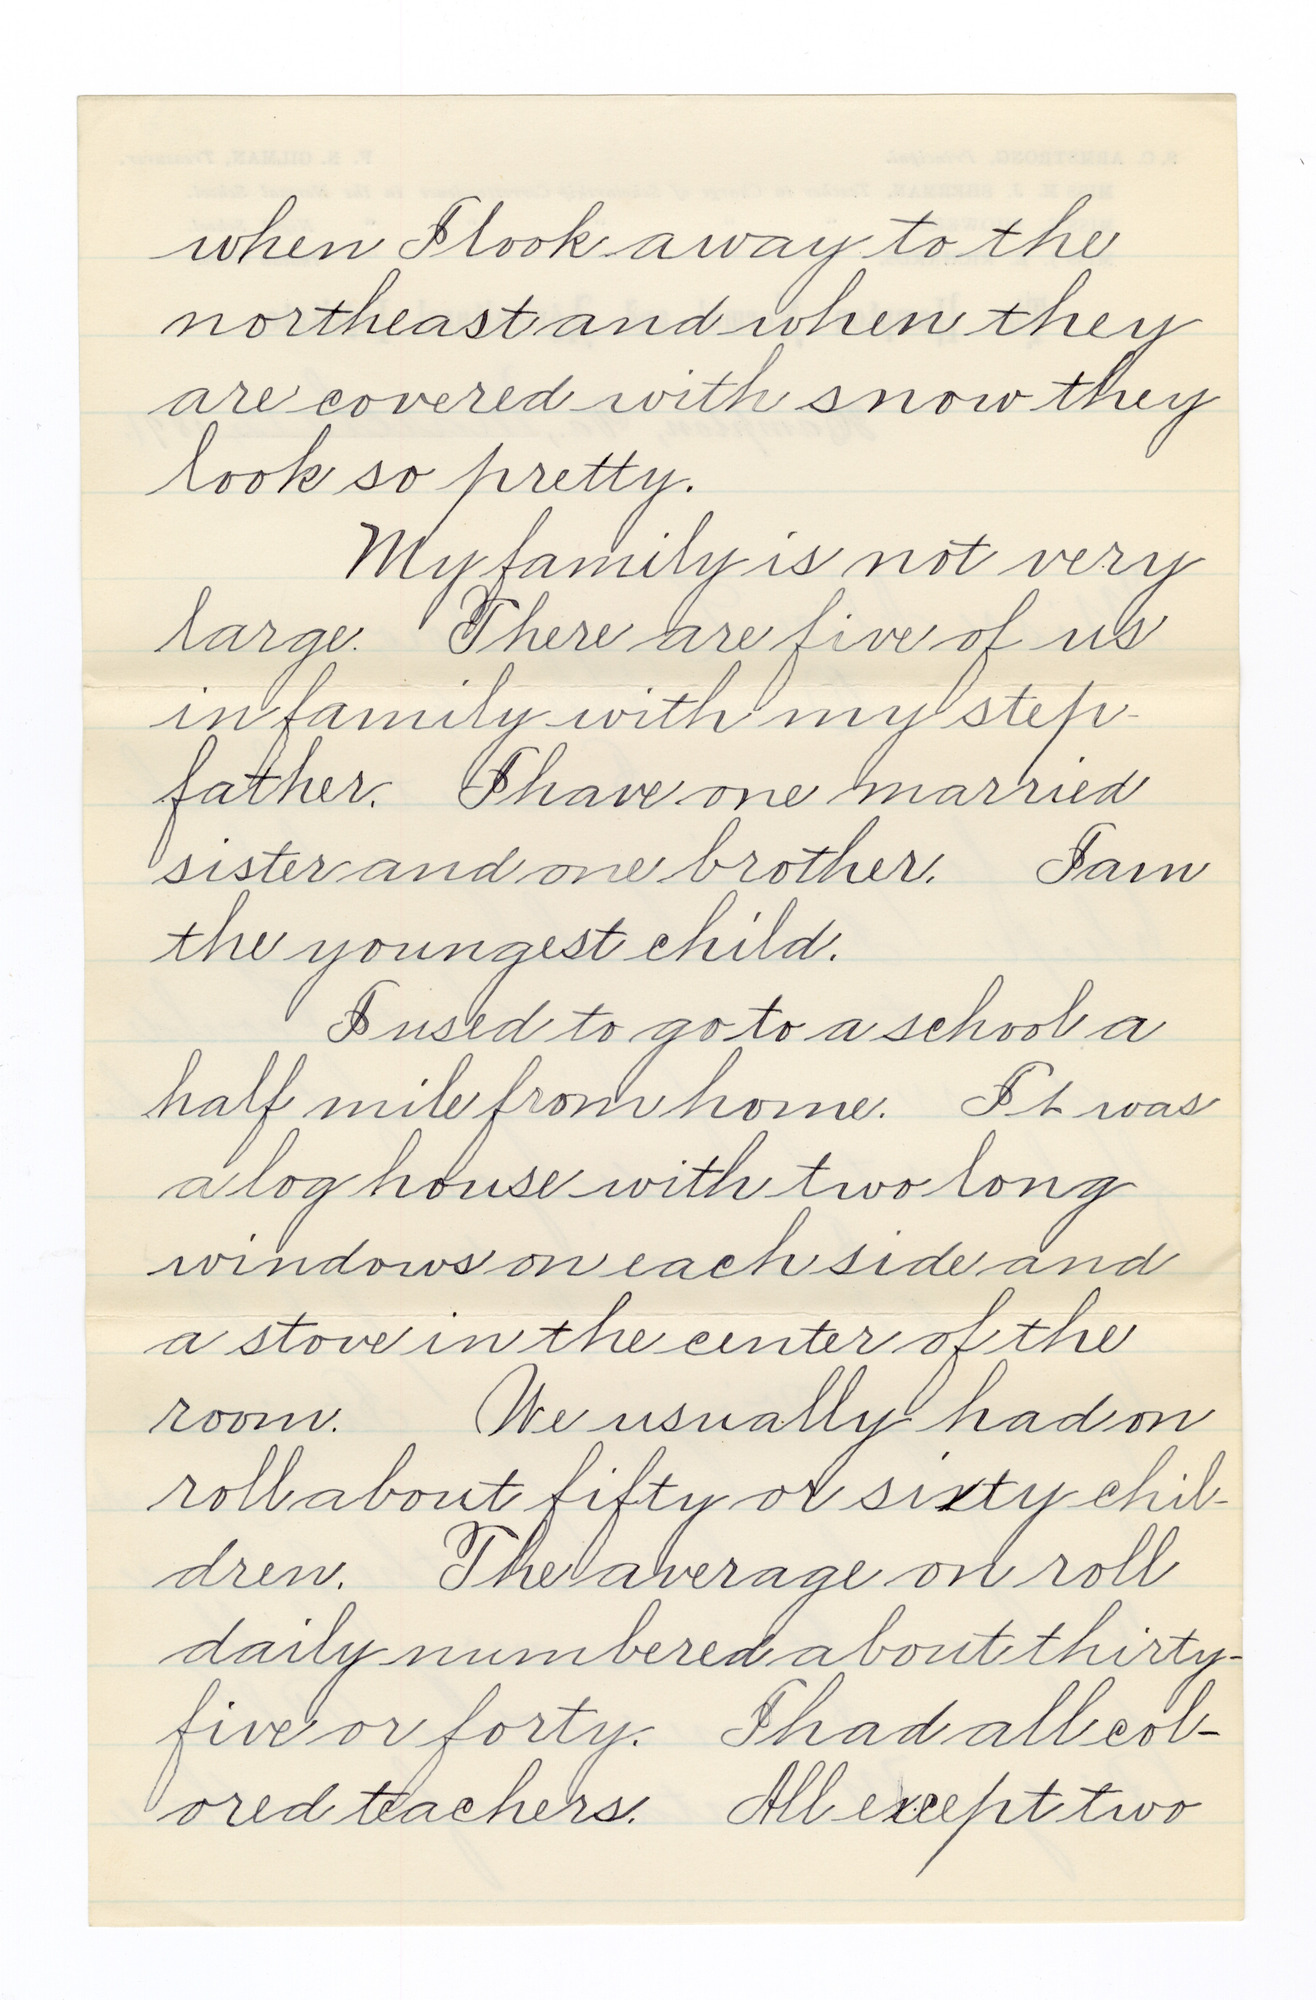 when I look away to the
northeast and when they
are covered with snow they
look so pretty.
My family is not very
large. There are five of us
in family with my step-
father. I have one married
sister and one brother. I am
the youngest child.
I used to go to a school a
half mile from home. It was
a log house with two long
windows on each side and
a stove in the center of the
room. We usually had on
roll about fifty or sixty chil-
dren. The average on roll
daily numbered about thirty-
five or forty. I had all col-
ored teachers. All except two